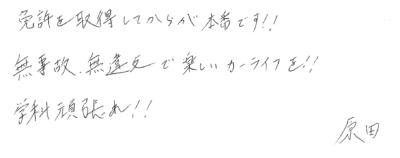 免許を取得してからが本番です!!
無事故、無違反で楽しいカーライフを!!
学科頑張れ!!
原田